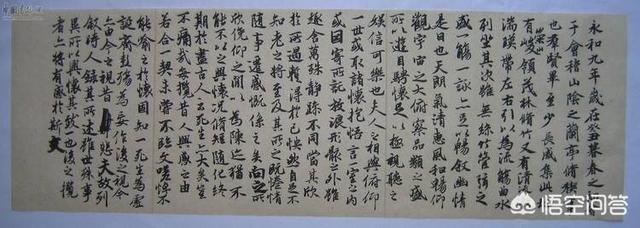 永和九年歲在癸丑暮春之初會
于會稽山陰之蘭亭脩稧事
也羣賢畢至少長咸集此地
有崇山峻領茂林脩竹又有清流激
湍暎帶左右引以為流觴曲水
列坐其次雖無絲竹管弦之
盛一觴一詠亦足以暢叙幽情
是日也天朗氣清惠風和暢仰
觀宇宙之大俯察品類之盛
所以遊目騁懷足以極視聽之
娛信可樂也夫人之相與俯仰
一世或取諸懷抱悟言一室之内
或因寄所託放浪形骸之外雖
趣舍萬殊静躁不同當其欣
於所遇蹔得於己怏然自足不
知老之將至及其所之既惓情
隨事遷感慨係之矣向之所
欣俛仰之閒以為陳迹猶不
能不以之興懷況脩短隨化終
期於盡古人云死生亦大矣豈
不痛哉每攬昔人興感之由
若合一契未嘗不臨文嗟悼不
能喻之於懷固知一死生為虛
誕齊彭殤為妄作後之視今
亦由今之視昔悲夫故列
叙時人録其所述雖世殊事
異所以興懷其致一也後之攬
者亦將有感於斯文
悟空问答